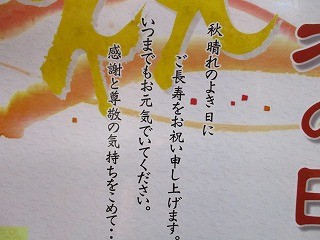 の日
秋晴れのよき日に
ご長寿をお祝い申し上げます。
いつまでもお元気でいてください。
感謝と尊敬の気持ちをこめて・・